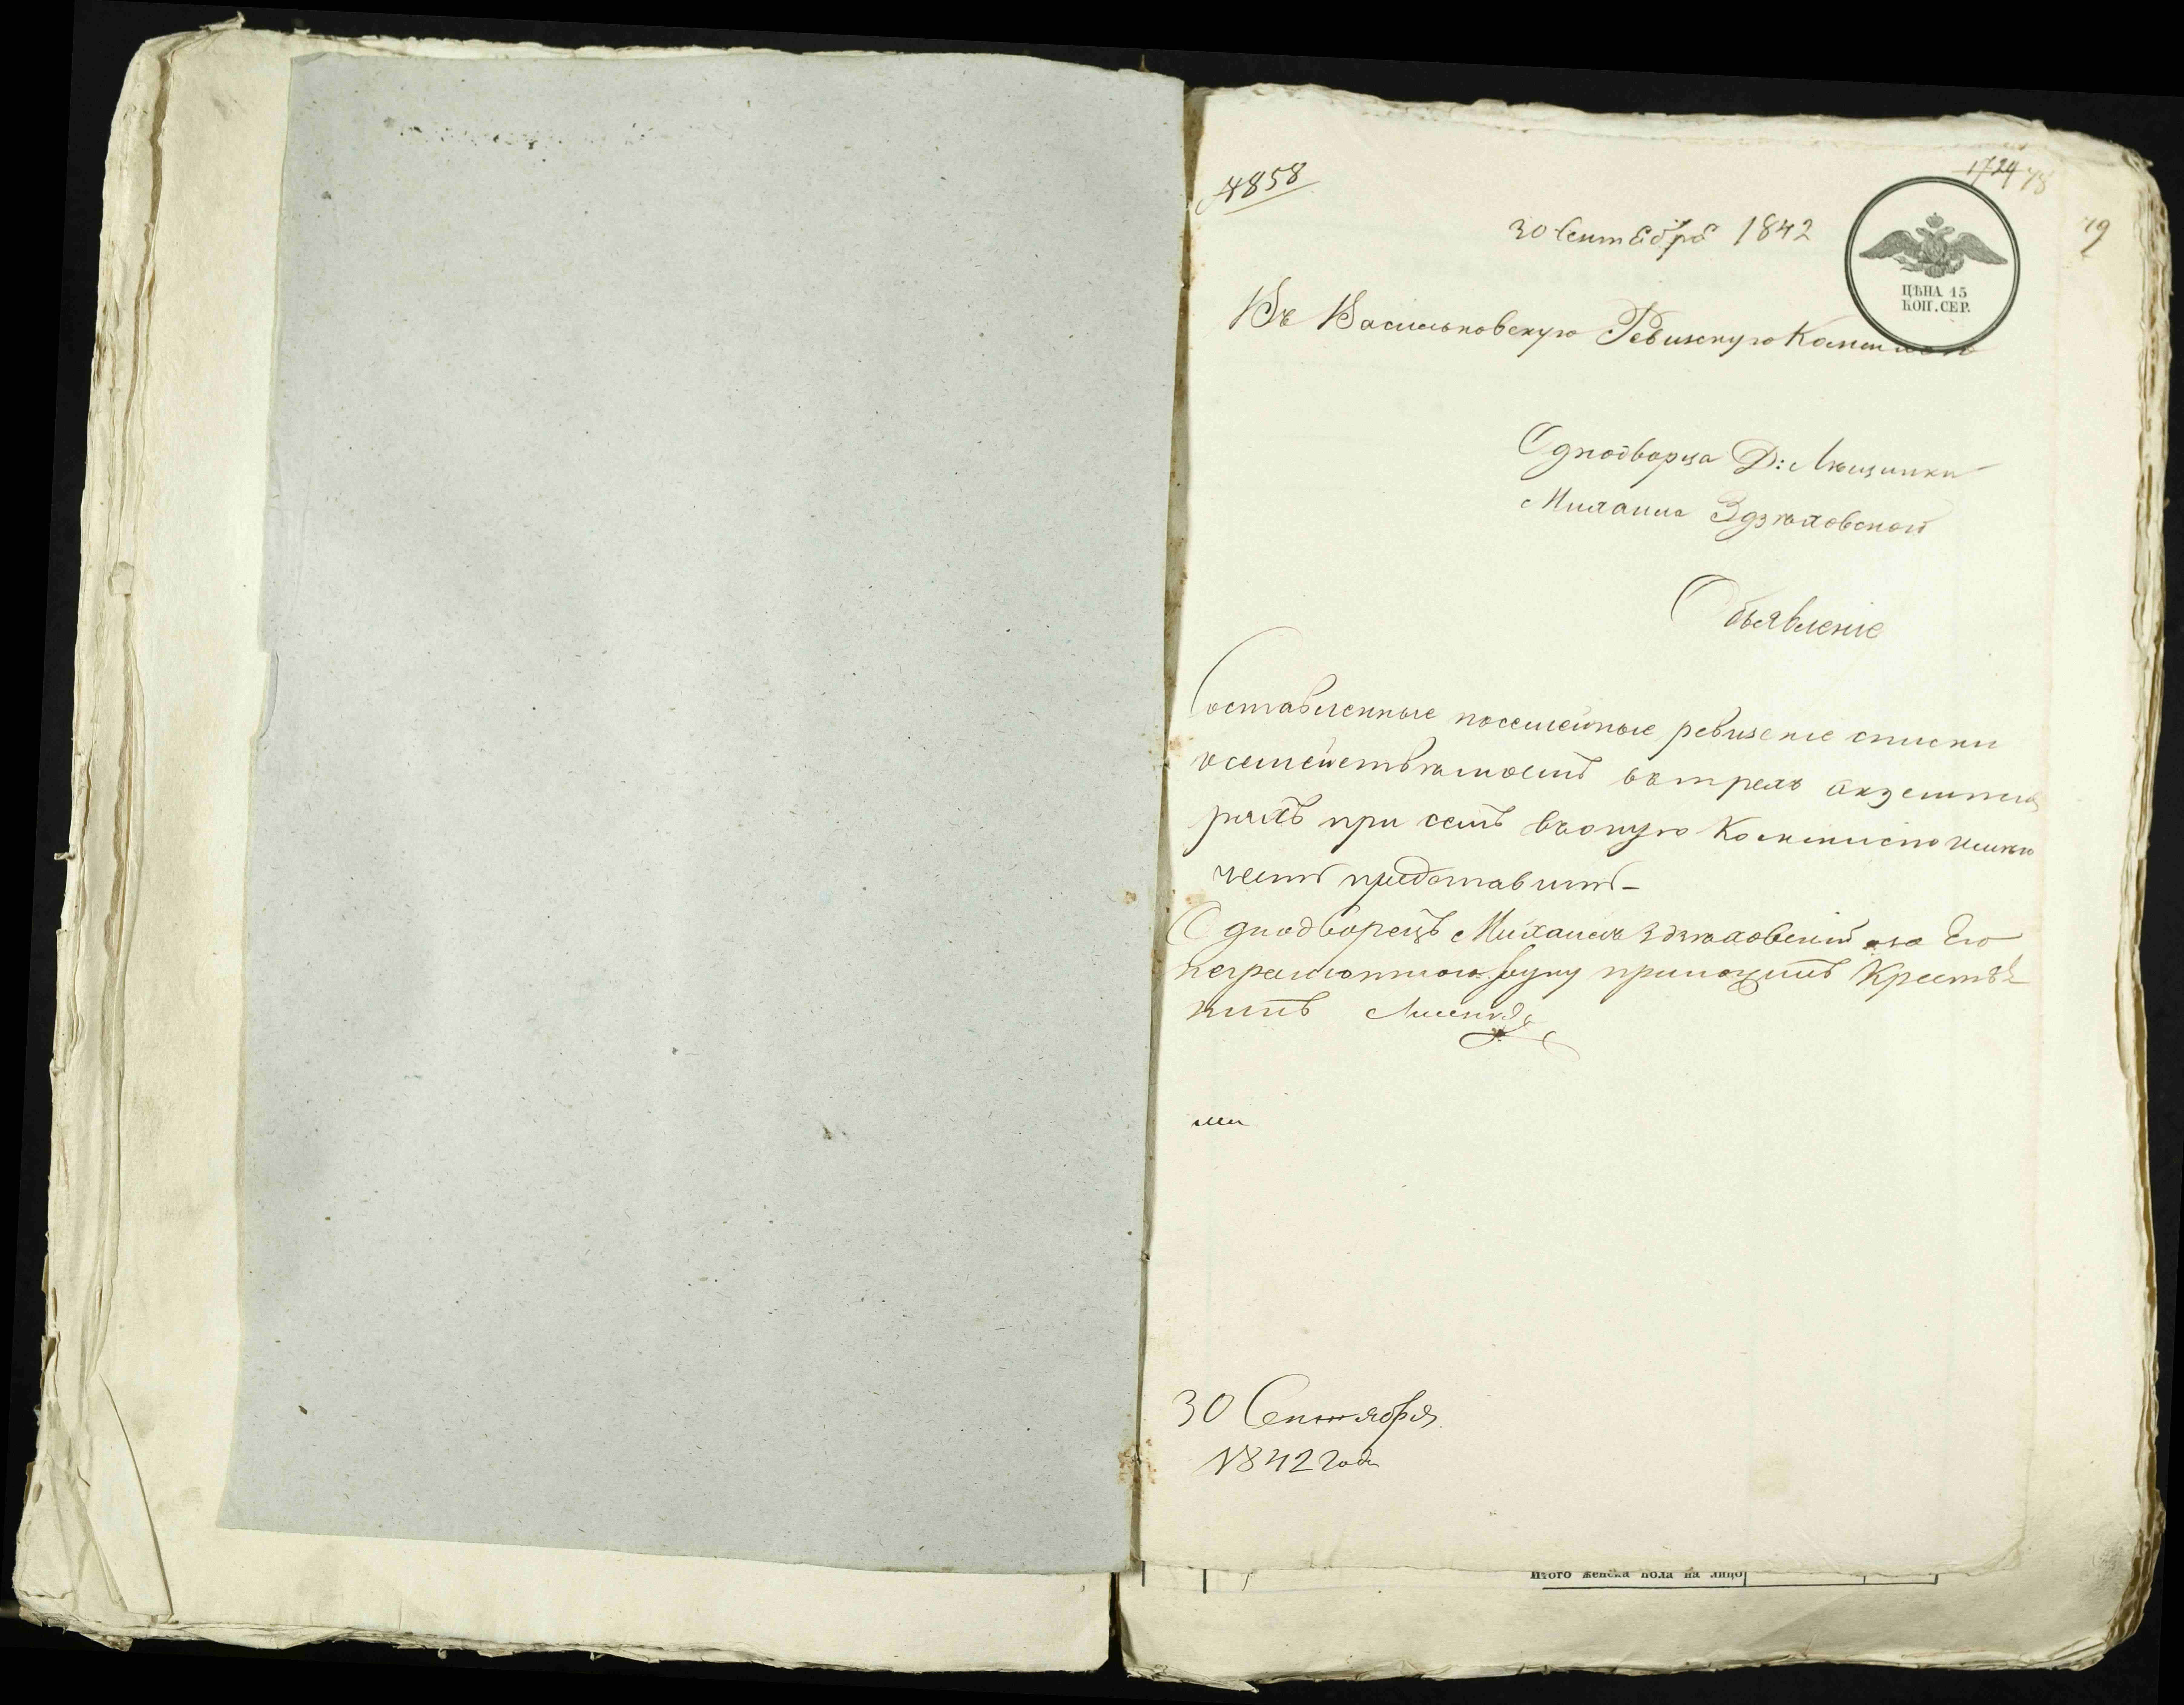 4858
1724 78
79
30 Сентября 1842
ЦѢНА 15
КОП. СЕР.
Въ Васильковскую Ревизскую Комисію
Однодворца Д: Лющинки
Михаила Здзѣховской
Объявленіе
Составленные посемейные ревизскіе списки
о семействѣ моемъ въ трехъ
при семъ въ оную Коммисію имѣю
честь предоставить -
Однодворецъ Михаилъ Здзѣховскій а за Его
неграмотного руку приложилъ Крестья
нинъ
ми
30 Сентября
1842 года
Итого женска пола на лицо